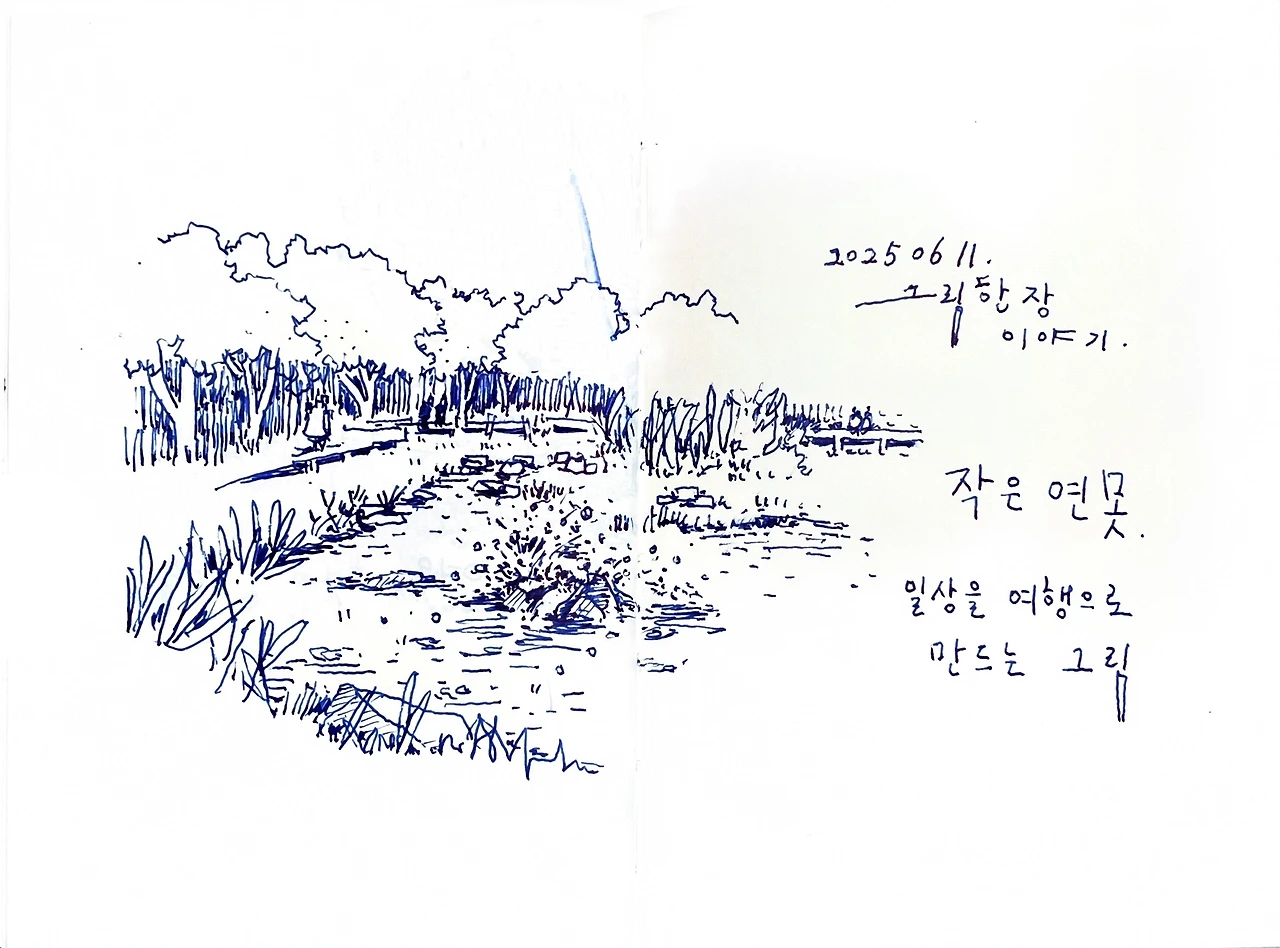 2025 06 11.
그림 한 장
이야기.
작은 연못.
일상을 여행으로
만드는 그림